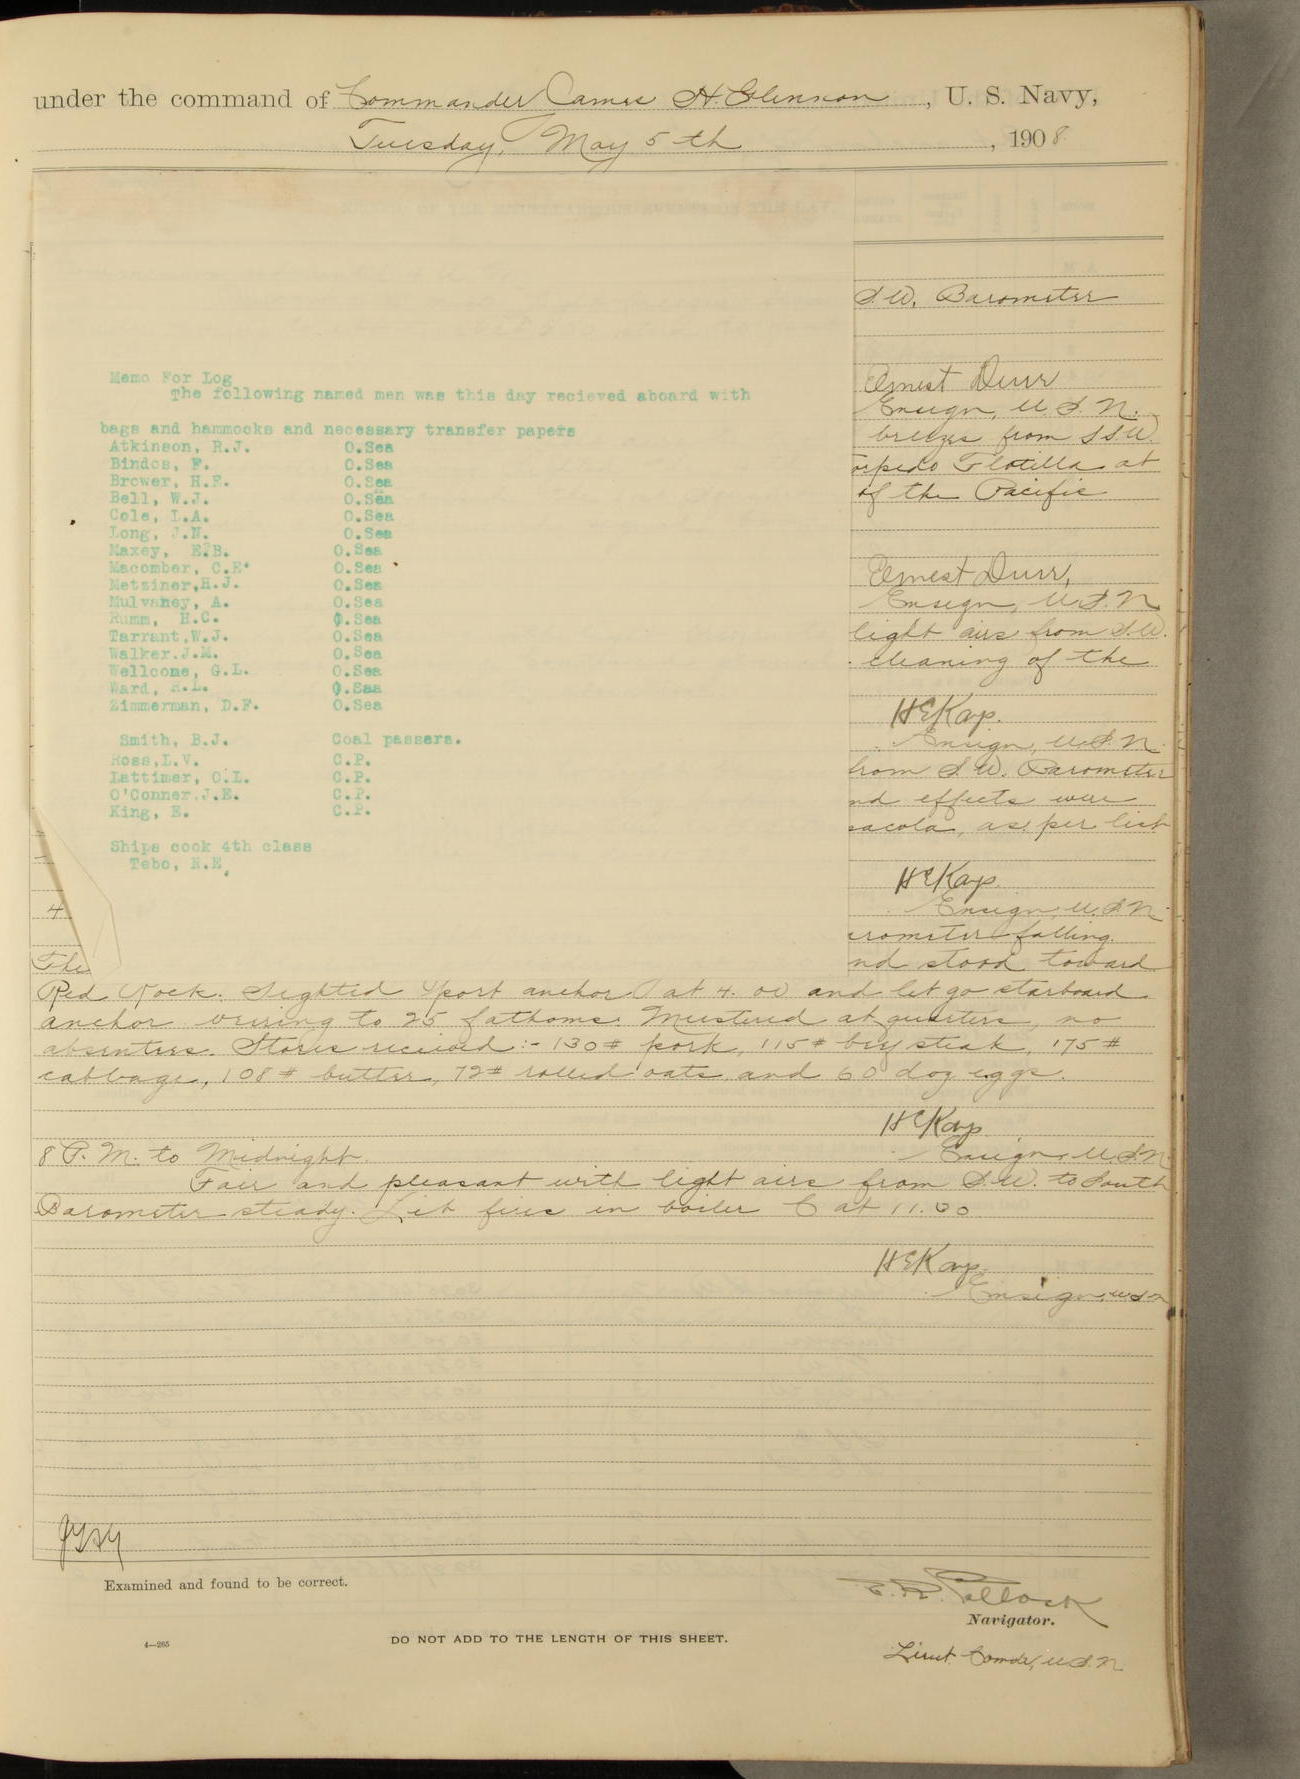 under the command of Commander James H. Glennon, U. S. Navy,
Tuesday, May 5th, 1908
S.W. Barometer
Memo For Log
The following named men was this day recieved aboard with
bags and hammocks and necessary transfer papers
Atkinson, R.J. O.Sea
Bindos, F. O.Sea
Brower, H.F. O.Sea
Bell, W.J. O.Sea
Cole, L.A. O.Sea
Long, J.N. O.Sea
Maxey, E.B. O.Sea
Macomber, C.E. O.Sea
Metziner,H.J. O.Sea
Mulvaney, A. O.Sea
Rumm, H.C. O.Sea
Tarrant,W.J. O.Sea
Walker.J.M. O.Sea
Wellcome, G.L. O.Sea
Ward, R.L. O.Sea
Zimmerman, D.F. O.Sea
Smith, B.J. Coal passers.
Ross,L.V. C.P.
Lattimer, C.L. C.P.
O'Conner.J.E. C.P.
King, E. C.P.
Ships cook 4th class
Tebo, N.E.
Ernest Durr
Ensign, U.S.N.
breezes from SSW.
orpedo Flotilla at
of the Pacific
Ernest Durr,
Ensign, U.S.N
light airs from S.W.
cleaning of the
HEKays.
Ensign, U.S.N.
from S.W. Barometer
nd effects were
sacola, as per list
HEKays.
Ensign, U.S.N.
4
arometer falling.
The nd stood toward
Red Rock. Sighted port anchor at 4.00 and let go starboard
anchor veering to 25 fathoms. Mustered at quarters, no
absentees. Stores received:- 130# pork, 115# beef steak, 175#
cabbage, 108# butter, 72# rolled oats, and 60 doz eggs.
HEKays
Ensign, U.S.N.
8 P.M. to Midnight.
Fair and pleasant with light airs from S.W. to South
Barometer steady. Lit fires in boiler C at 11.00
HEKays.
Ensign, U.S.N
Examined and found to be correct.
E. R. Pollock
Navigator.
4—265
DO NOT ADD TO THE LENGTH OF THIS SHEET.
Lieut. Comdr, U.S.N